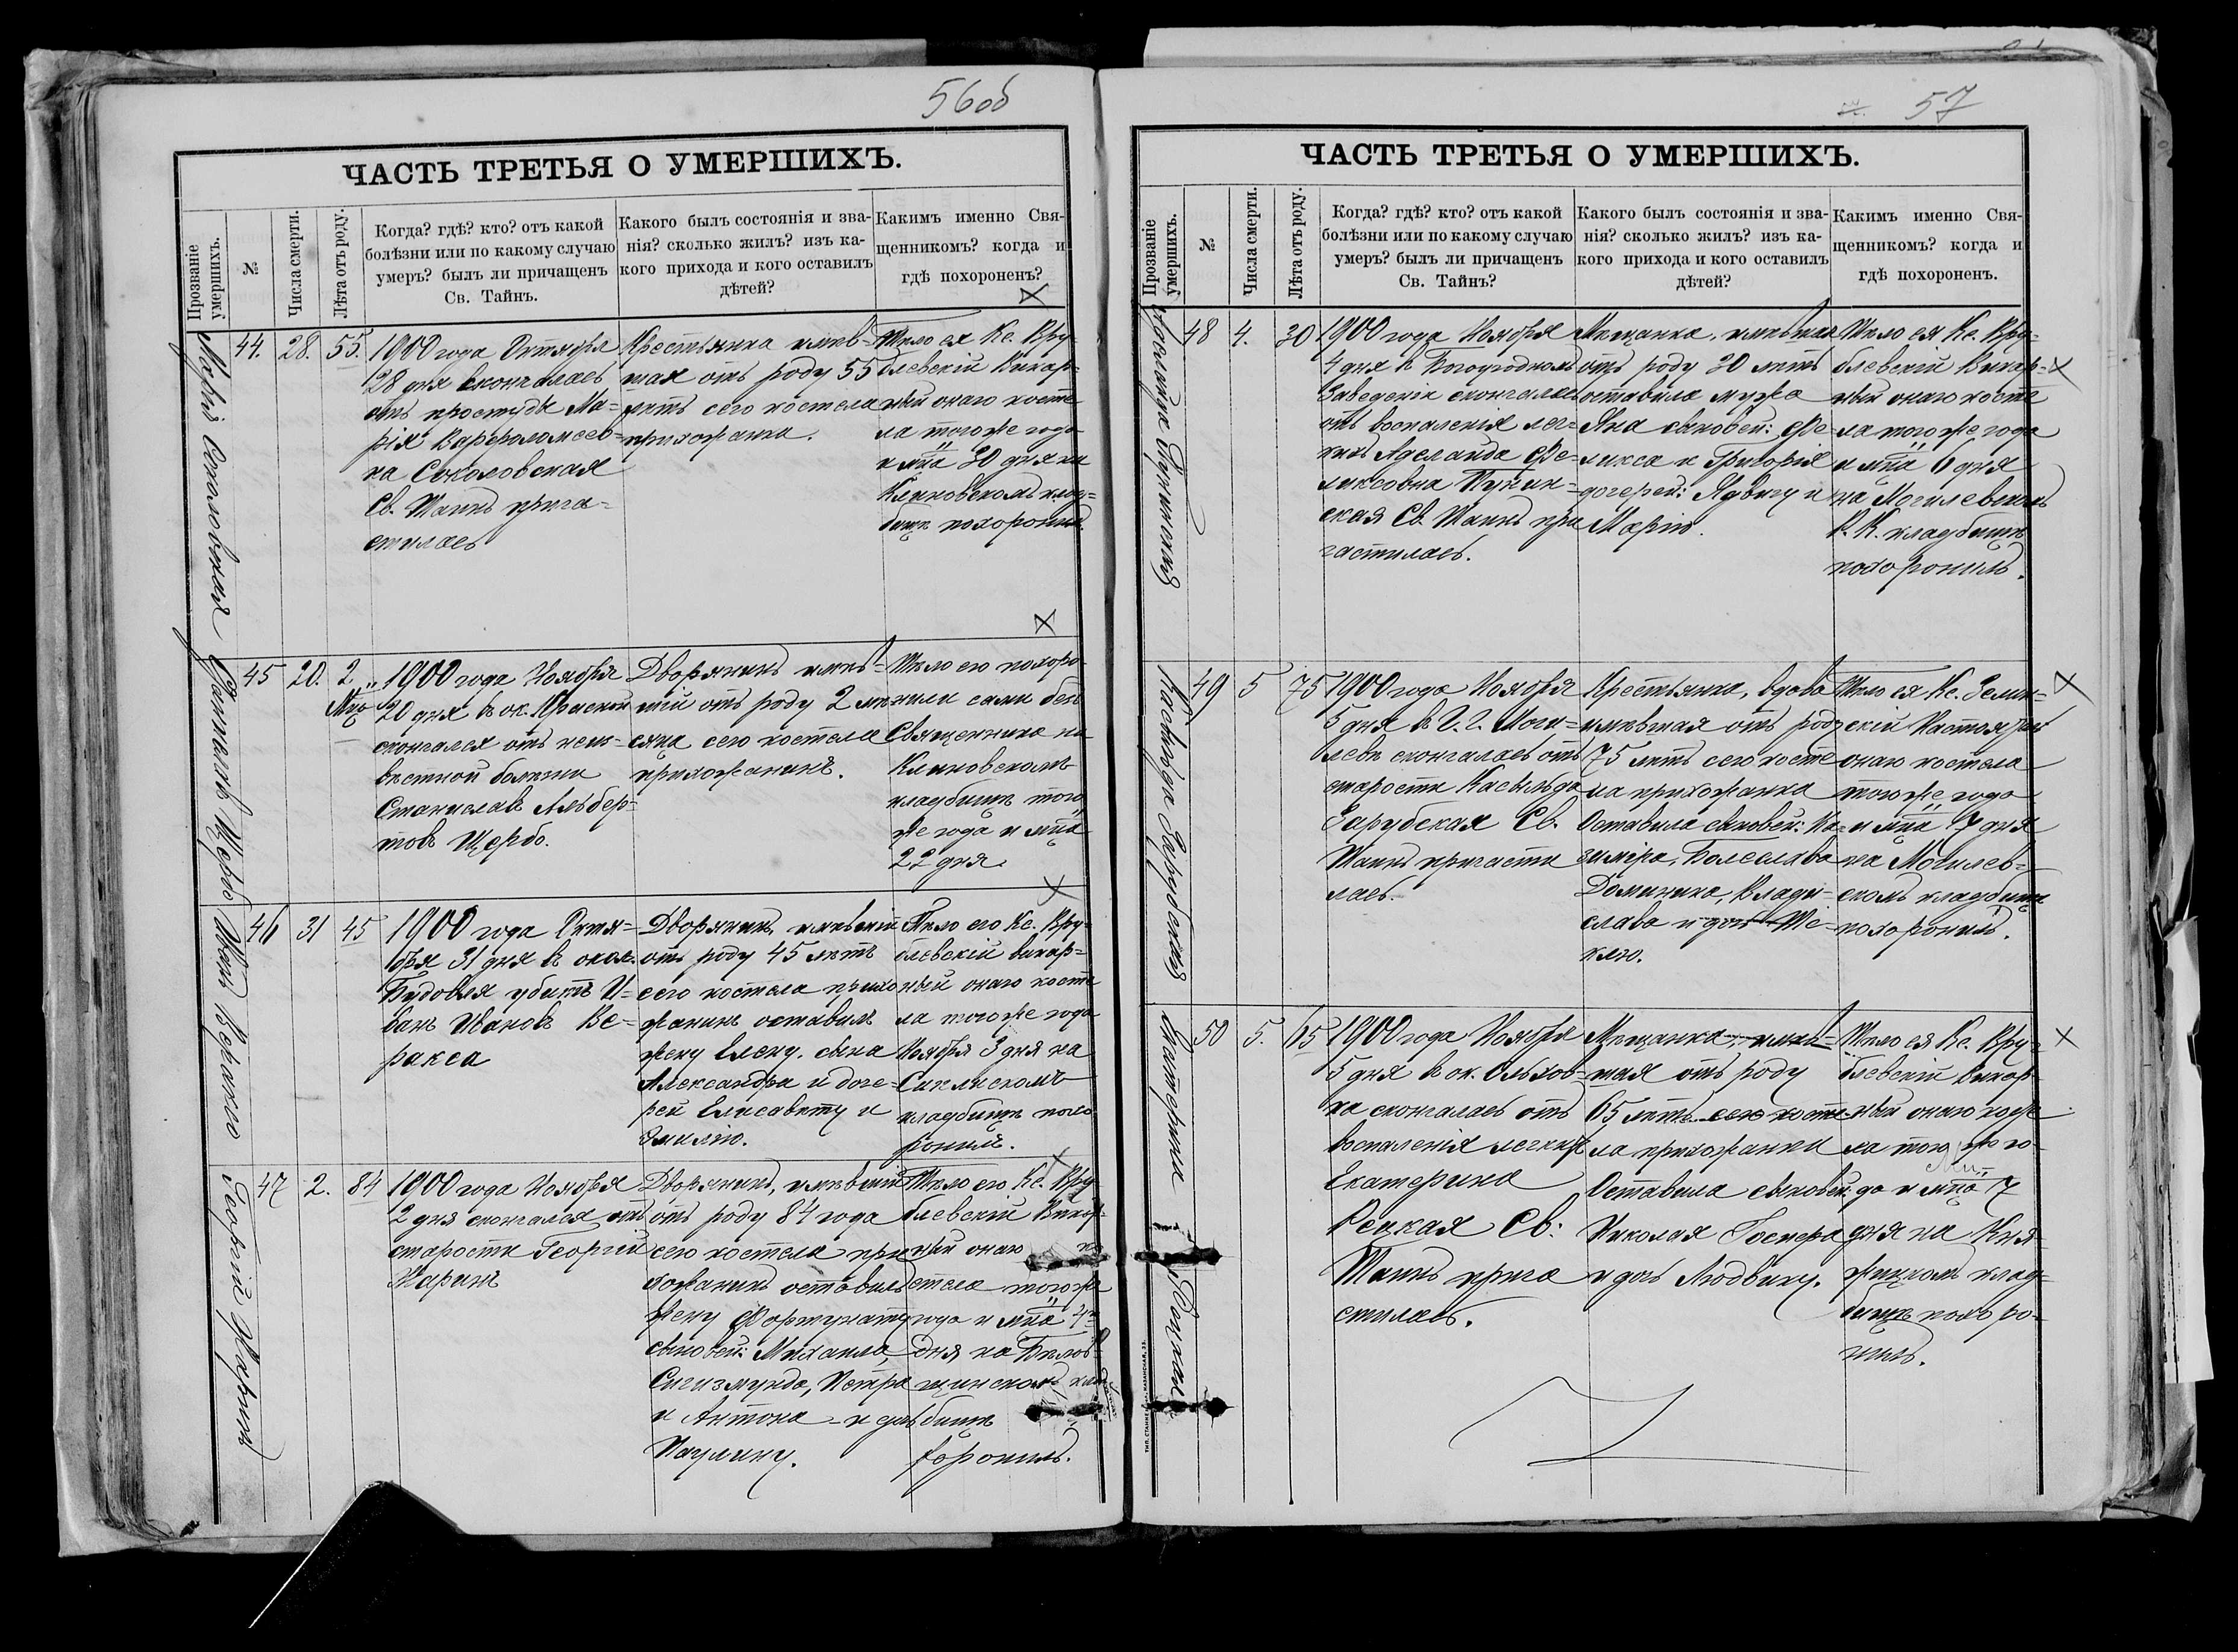 56об
ЧАСТЬ ТРЕТЬЯ О УМЕРШИХЪ.
Прозваніе умершихъ.
№
Числа смерти.
Лѣта отъ роду.
Когда? гдѣ? кто? отъ какой
болѣзни или по какому случаю
умеръ? былъ ли причащенъ
Св. Тайнъ.
Какого былъ состоянія и зва-
нія? сколько жилъ? изъ ка-
кого прихода и кого оставилъ
дѣтей?
Какимъ именно Свя-
щенникомъ? когда и
гдѣ похороненъ?
Марія Соколовская
44.
28.
55.
1900 года Октября
28 дня скончалась
отъ простуды Ма-
рія Варфоломеев-
на Соколовская
Св. Таинъ прича-
стилась
Крестьянка имѣв-
шая отъ роду 55
лѣтъ сего костела
прихожанка.
Тѣло ея Кс. Вру-
блевскій Викар-
ный онаго косте
ла того же года
и мца 30 дня на
Климовскомъ клад-
бищѣ похоронилъ.
Станиславъ Щербо
45
20.
2
Мца
1900 года Ноября
20 дня въ ок. Красной
скончался отъ неиз-
вѣстной болѣзни
Станиславъ Альбер-
товъ Щербо.
Дворянинъ имѣв-
шій отъ роду 2 мѣ-
сяца сего костела
прихожанинъ.
Тѣло его похоро-
нили сами безъ
Священника на
Климовскомъ
кладбищѣ того
же года и мца
22 дня.
Иванъ Веракса
46
31
45
1900 года Октя-
бря 31 дня въ окол.
Будовля убитъ И-
ванъ Ивановъ Ве-
ракса
Дворянинъ имѣвшій
отъ роду 45 лѣтъ
сего костела прихо
жанинъ оставилъ
жену Елену. сына
Александра и доче-
рей Елисавету и
Эмилію.
Тѣло его Кс. Вру-
блевскій викар-
ный онаго косте
ла того же года
Ноября 3 дня на
кладбищѣ похо
ронилъ.
Георгій Жаринъ
47
2.
84
1900 года Ноября
2 дня скончался отъ
старости Георгій
Жаринъ
Дворянинъ, имѣвшій
отъ роду 84 года
сего костела при
хожанинъ оставилъ
жену Фортунату
сыновей: Михаила,
Сигизмунда, Петра
и Антона и дочь
Паулину.
Тѣло его Кс. Вру
блевскій Викар-
ный онаго ко
стела того же
года и мца 4
дня на
кладбищѣ
хоронилъ.
57
ЧАСТЬ ТРЕТЬЯ О УМЕРШИХЪ.
Прозваніе умершихъ.
№
Числа смерти.
Лѣта отъ роду.
Когда? гдѣ? кто? отъ какой
болѣзни или по какому случаю
умеръ? былъ ли причащенъ
Св. Тайнъ?
Какого былъ состоянія и зва-
нія? сколько жилъ? изъ ка-
кого прихода и кого оставилъ
дѣтей?
Какимъ именно Свя-
щенникомъ? когда и
гдѣ похороненъ.
48
4.
30
1900 года Ноября
4 дня въ Богоугодномъ
Заведеніи скончалась
отъ воспаленія лег-
кихъ Аделаида Фе-
ликсовна
ская Св. Таинъ при
частилась.
Мѣщанка, имѣвшая
отъ роду 30 лѣтъ
оставила мужа
Яна сыновей: Фе-
ликса и Григорія
дочерей: Ядвигу и
Марію.
Тѣло ея Кс. Вру-
блевскій Викар-
ный онаго косте
ла того же года
и мца 6 дня
на Могилевскомъ
Р. К. кладбищѣ
похоронилъ.
Касильда Зарубская
49
5
75
1900 года Ноября
5 дня въ Г. Г. Моги-
левѣ скончалась отъ
старости Касильда
Зарубская Св.
Таинъ причасти
лась.
Крестьянка, вдова
имѣвшая отъ роду
75 лѣтъ сего косте
ла прихожанка
Оставила сыновей: Ка-
зиміра, Болеслава
Доминика, Влади-
слава и дочь Те-
клю.
Тѣло ея Кс. Зелин-
скій Настоятель
онаго костела
того же года
и мца 7 дня
на Могилев-
скомъ кладбищѣ
похоронилъ.
Екатерина Рецкая
50
5.
65
1900 года Ноября
5 дня въ ок. Ольхов-
ка скончалась отъ
воспаленія легкихъ
Екатерина
Рецкая Св:
Таинъ прича
стилась.
Мѣщанка, имѣв-
шая отъ роду
65 лѣтъ сего косте
ла прихожанка
Оставила сыновей:
Николая Госпера
и дочь Людвику.
Тѣло ея Кс. Вру-
блевскій Викар-
ный онаго косте
ла того же го-
да и мца 7
дня на Кня-
жицкомъ клад-
бищѣ похоро-
нилъ.